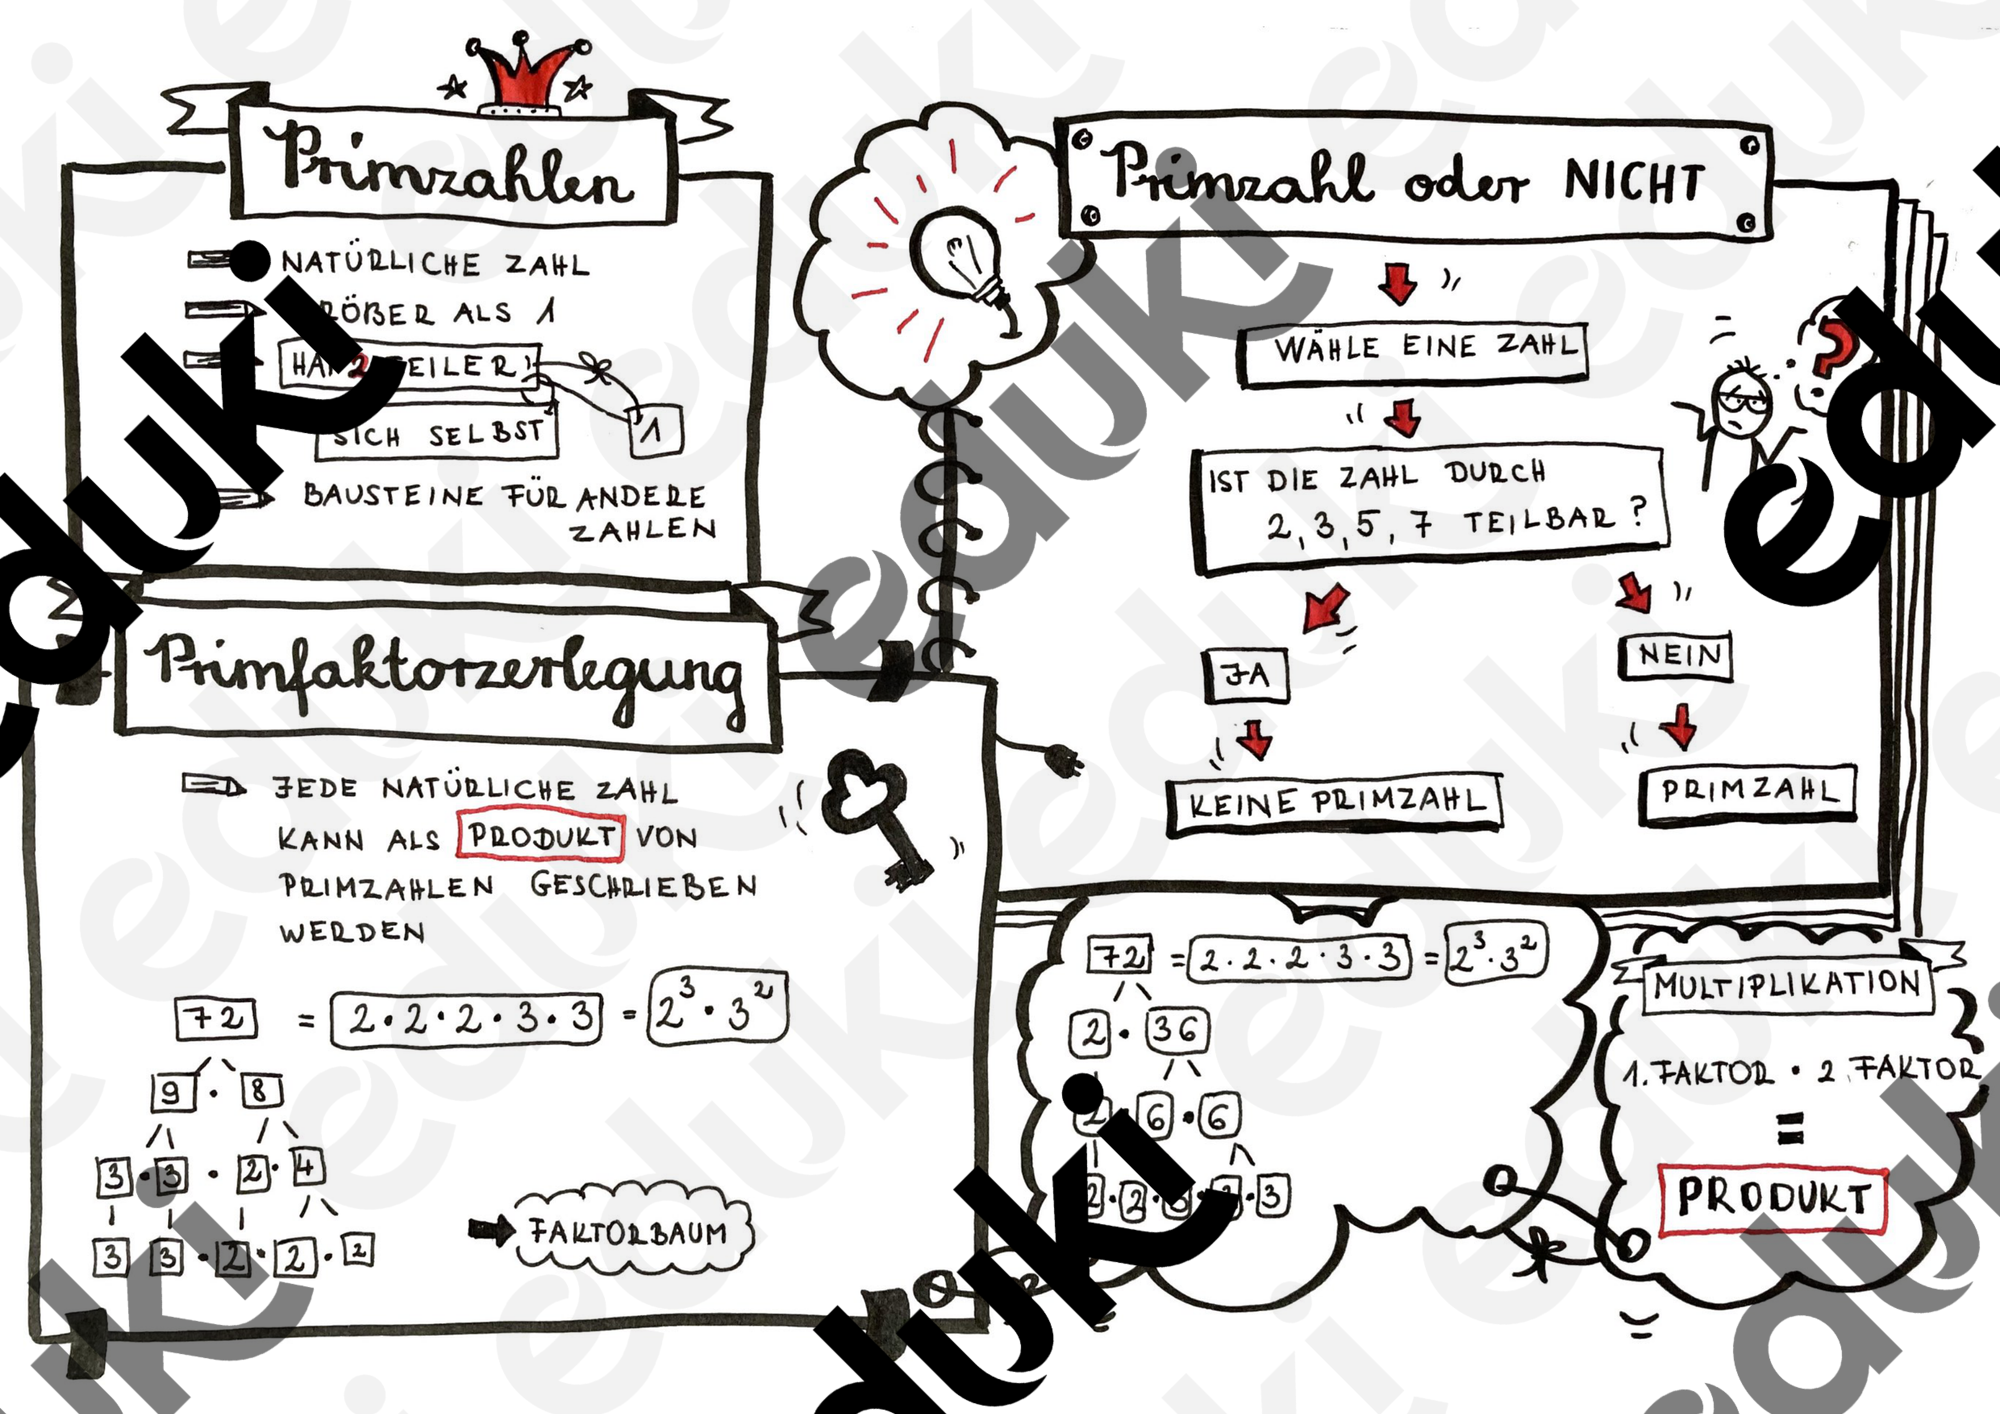 Primzahlen
NATÜRLICHE ZAHL
GRÖßER ALS 1
HAT 2 TEILER!
SICH SELBST
1
BAUSTEINE FÜR ANDERE
ZAHLEN
Primfaktorzerlegung
JEDE NATÜRLICHE ZAHL
KANN ALS PRODUKT VON
PRIMZAHLEN GESCHRIEBEN
WERDEN
72 = 2·2·2·3·3 = 2³·3²
9 · 8
3 · 3 · 2 · 4
3 3 · 2 · 2 · 2
FAKTORBAUM
Primzahl oder NICHT
WÄHLE EINE ZAHL
?
IST DIE ZAHL DURCH
2, 3, 5, 7 TEILBAR?
JA
NEIN
KEINE PRIMZAHL
PRIMZAHL
72 = 2·2·2·3·3 = 2³·3²
2 · 36
2 · 6 · 6
2 · 2 · 3 · 3
MULTIPLIKATION
1. FAKTOR · 2. FAKTOR
=
PRODUKT
eduki
eduki
eduki
eduki
eduki
eduki